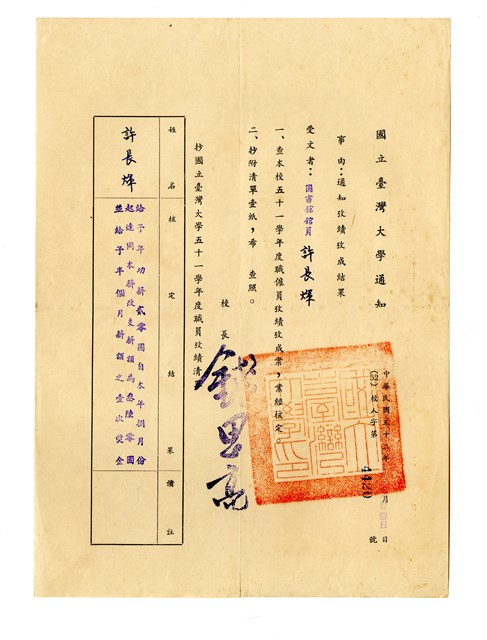 國立臺灣大學通知
中華民國五十二年 月 日
(52)校人字第4420號
事由：通知攷績攷成結果
受文者：圖書館館員 許長煇
一、查本校五十一學年度職僱員攷績攷成案，業經核定。
二、抄附清單壹紙，希 查照。
校長 錢思亮
抄國立臺灣大學五十一學年度職員攷績清
姓名 核定結果 備註
許長煇
給予年功薪貳零圓自本年捌月份
起連同本薪改支薪額為叁陸零圓
並給予半個月薪額之壹次獎金